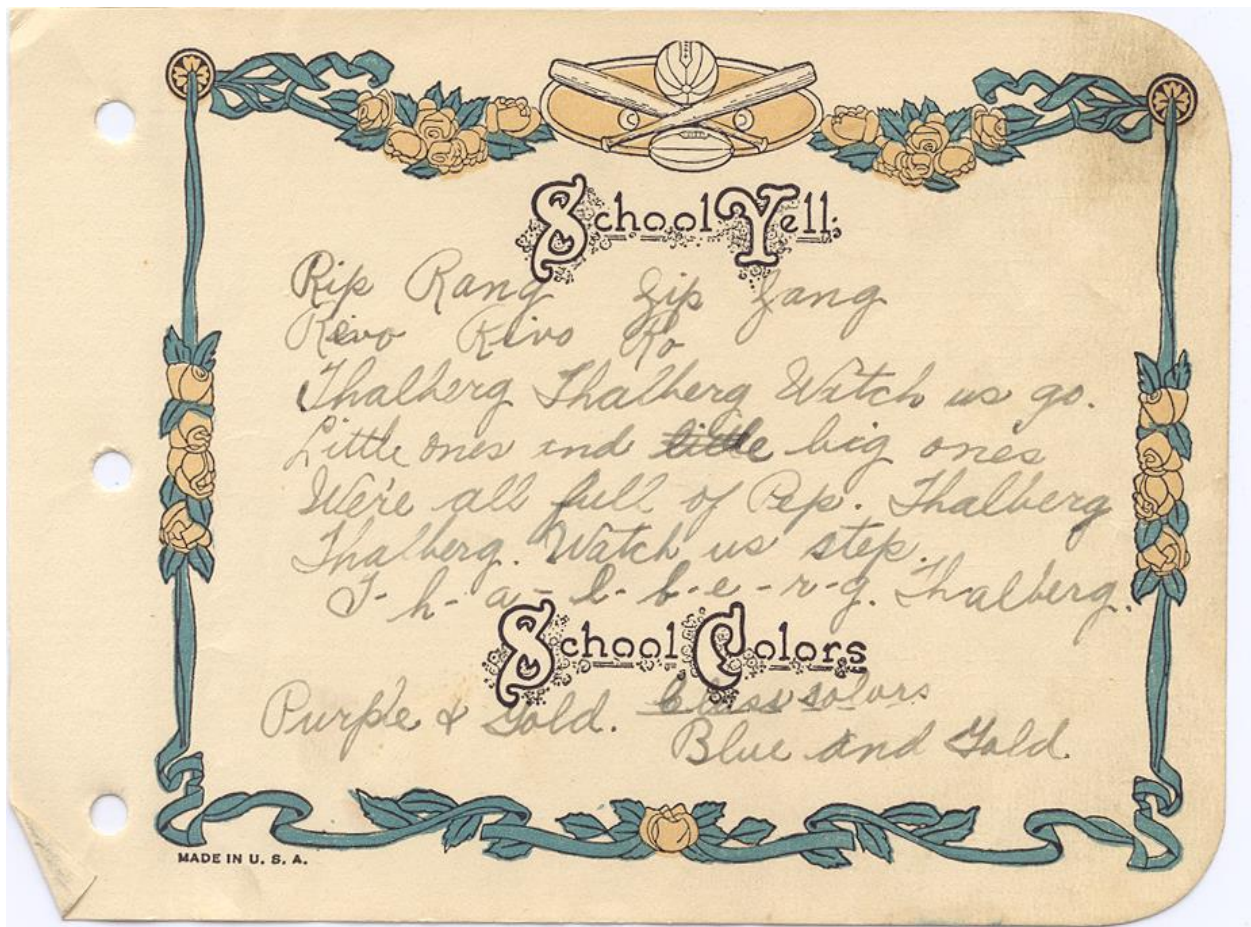 School Yell
Rip Rang Zip Zang
Kevo Kivo Ko
Thalberg Thalberg Watch us go.
Little ones and little big ones
We're all full of Pep. Thalberg
Thalberg. Watch us step.
T-h-a-l-b-e-r-g. Thalberg.
School Colors
Purple & Gold. Class colors
Blue and Gold
MADE IN U. S. A.